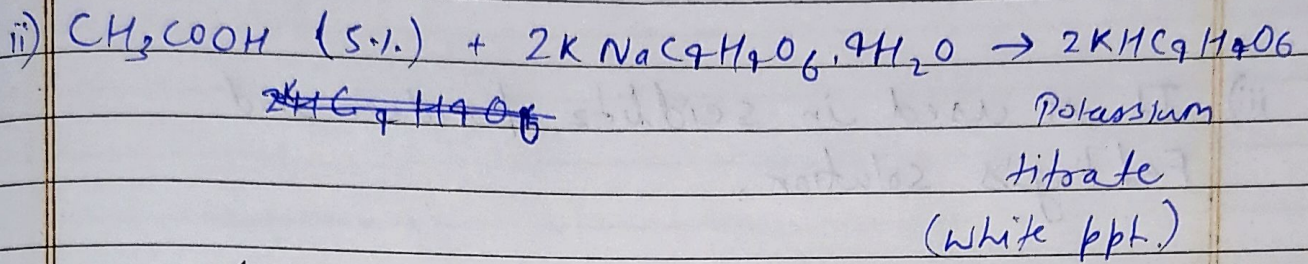 ii) CH3COOH (5.1.) + 2K NaC4H4O6.4H2O → 2KHC4H4O6
2KHC4H4O6
Potassium
titrate
(white ppt.)